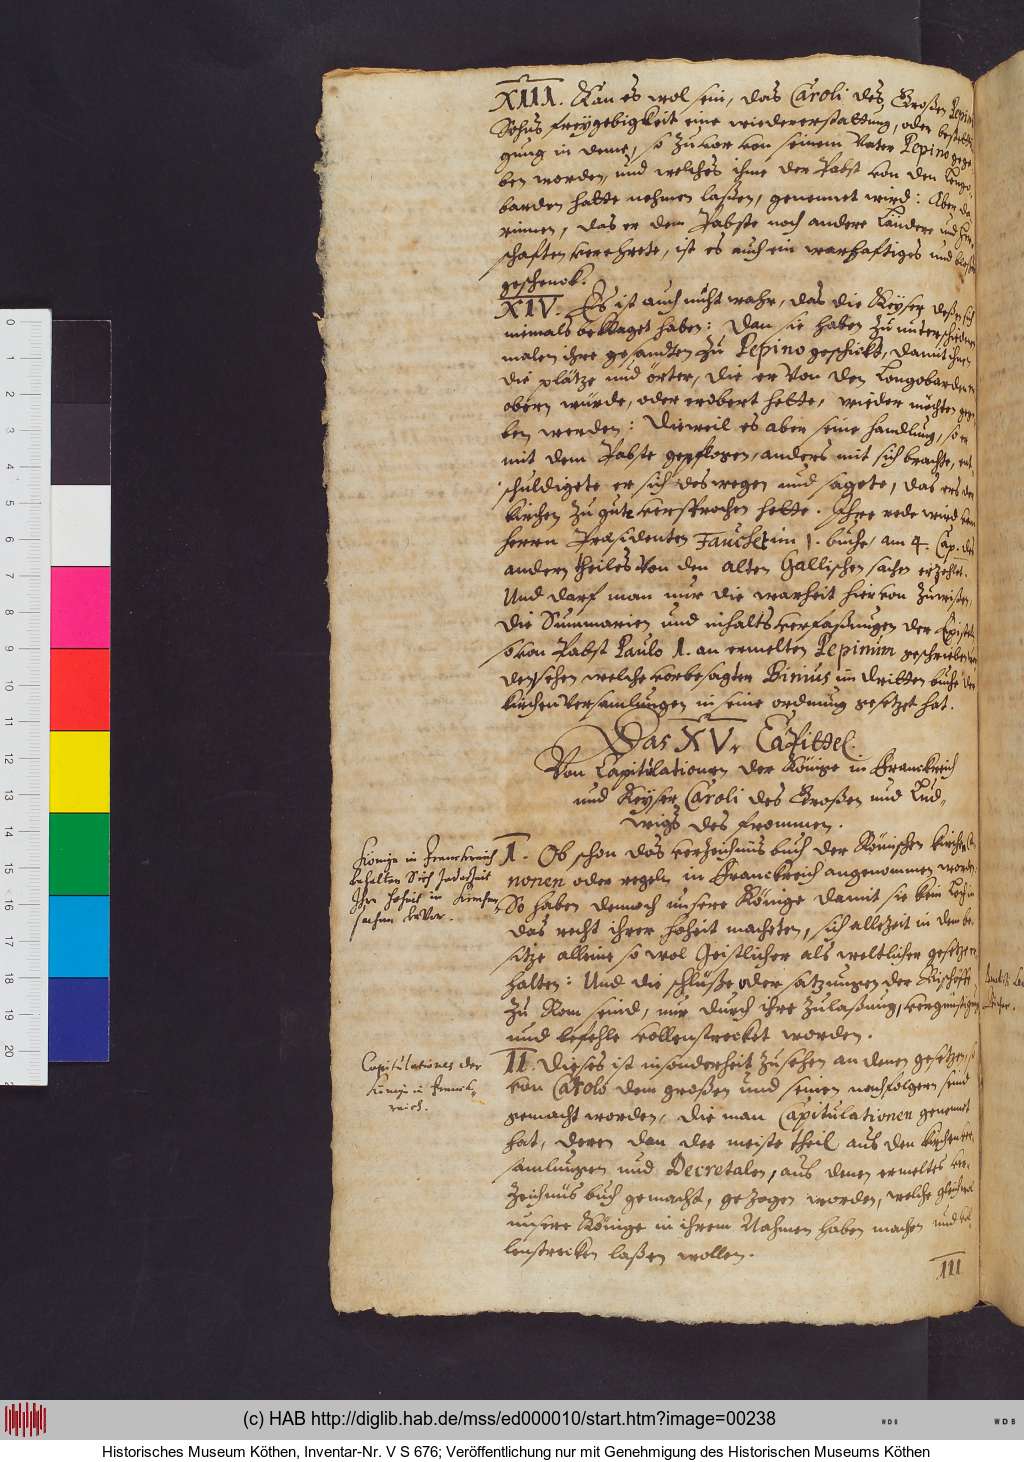 XIII. Kan es wol sein, das Caroli des Großen Pepin
Sohns freÿgebigkeit eine wiedererstattung, oder bestetti
gung in deme, so zuvor von seinem Vater Pepino gege
ben worden, und welches ihme der Pabst von den Longo-
barden hatte nehmen laßen, genennet wird: Aber da
rinnen, das er dem Pabste noch andere Ländere und Her-
schaften verehrete, ist es auch ein warhaftiges und bloßes
geschenck.
XIV. Es ist auch nicht wahr, das die Keÿser deßen sich
niemals beklaget haben: Dan sie haben zu unterschiedenen
malen ihre gesandten zu Pepino geschickt, damit ihnen
die plätze und örter, die er von den Longobarden er
obern würde, oder erobert hette, wieder möchten gege
ben werden: Dieweil es aber seine handlung, so er
mit dem Pabste gepflogen, anders mit sich brachte, ent
schuldigete er sich deswegen und sagete, das ers der
kirchen zu gute versprochen hette. Ihre rede wird vom
herrn Præsidenten Fauchet im 1. buche, am 4. Cap. des
andern theiles von den alten Gallischen sachen erzehlet.
Und darf man nur die warheit hiervon zuwißen,
die Summarien und inhaltsverfaßungen der Episteln
so von Pabst Paulo 1. an ermelten Pepinum geschrieben
densehen welche vorbesagter Binius im dritten buche der
kirchenversamlungen in seine ordnung gesetzet hat.
Das XV. Capittel.
Von Capitulationen der Könige in Franckreich
und Keÿser Caroli des Großen und Lud-
wigs des frommen.
Könige in Franckreich
behalten Sich Jederzeit
Ihre hoheit in Kirchen-
sachen bevor.
I. Ob schon das verzeichnüs buch der Römischen kirchen Ca
nonen oder regeln in Franckreich angenommen worden
So haben dennoch unsere Könige damit sie kein
das recht ihrer hoheit macheten, sich allezeit in dem be-
sitze alleine so wol Geistlicher als weltlicher gesetze er
halten: Und die schlüße oder satzungen der Bischöffe
zu Rom seind, nur durch ihre zulaßung, vergünstigung
und befehle vollenstrecket worden.
Capitulationes der
Könige in Franck-
reich.
II. Dieses ist insonderheit zusehen an denen gesetzen, so
von Carolo dem großen und seinen nachfolgern seind
gemacht worden, die man Capitulationen genennet
hat, deren dan der meiste theil aus den kirchenver
samlungen und Decretalen, aus denen ermeltes ver-
zeichnüs buch gemacht, gezogen worden, welche gleichwol
unsere Könige in ihrem Nahmen haben machen und vol
lenstrecken laßen wollen.
III
(c) HAB http://diglib.hab.de/mss/ed000010/start.htm?image=00238
Historisches Museum Köthen, Inventar-Nr. V S 676; Veröffentlichung nur mit Genehmigung des Historischen Museums Köthen